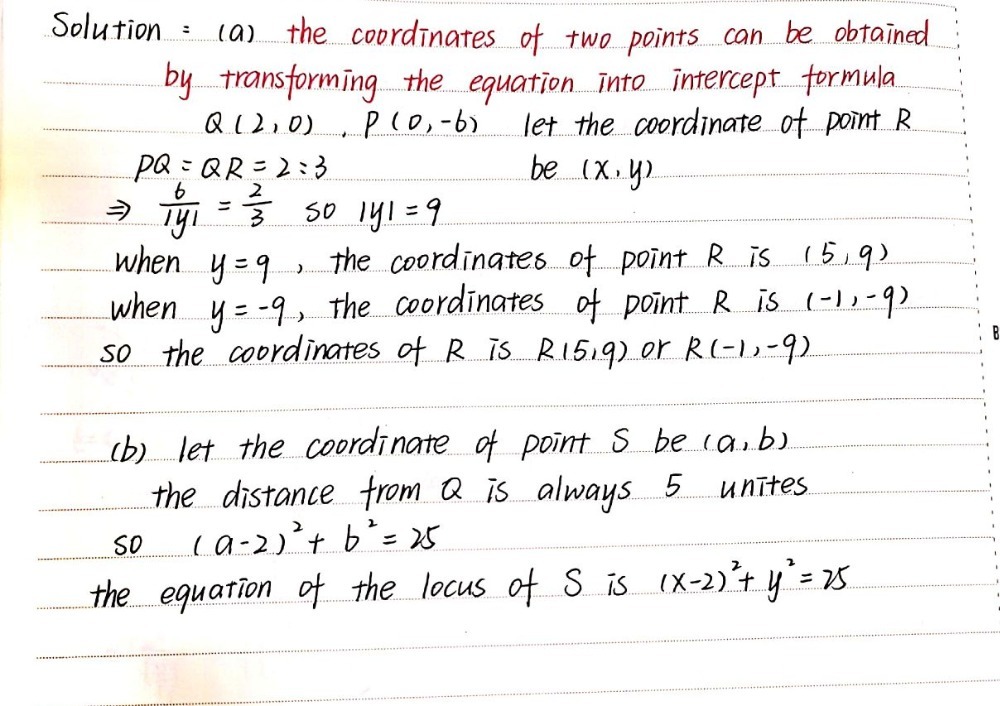 Solution : (a) the coordinates of two points can be obtained
by transforming the equation into intercept formula
Q(2,0) , P(0,-6) let the coordinate of point R
PQ : QR = 2:3 be (x,y)
⇒ 6/|y| = 2/3 so |y| = 9
when y=9 , the coordinates of point R is (5,9)
when y=-9, the coordinates of point R is (-1,-9)
so the coordinates of R is R(5,9) or R(-1,-9)
(b) let the coordinate of point S be (a,b)
the distance from Q is always 5 unites
so (a-2)² + b² = 25
the equation of the locus of S is (x-2)² + y² = 25
B